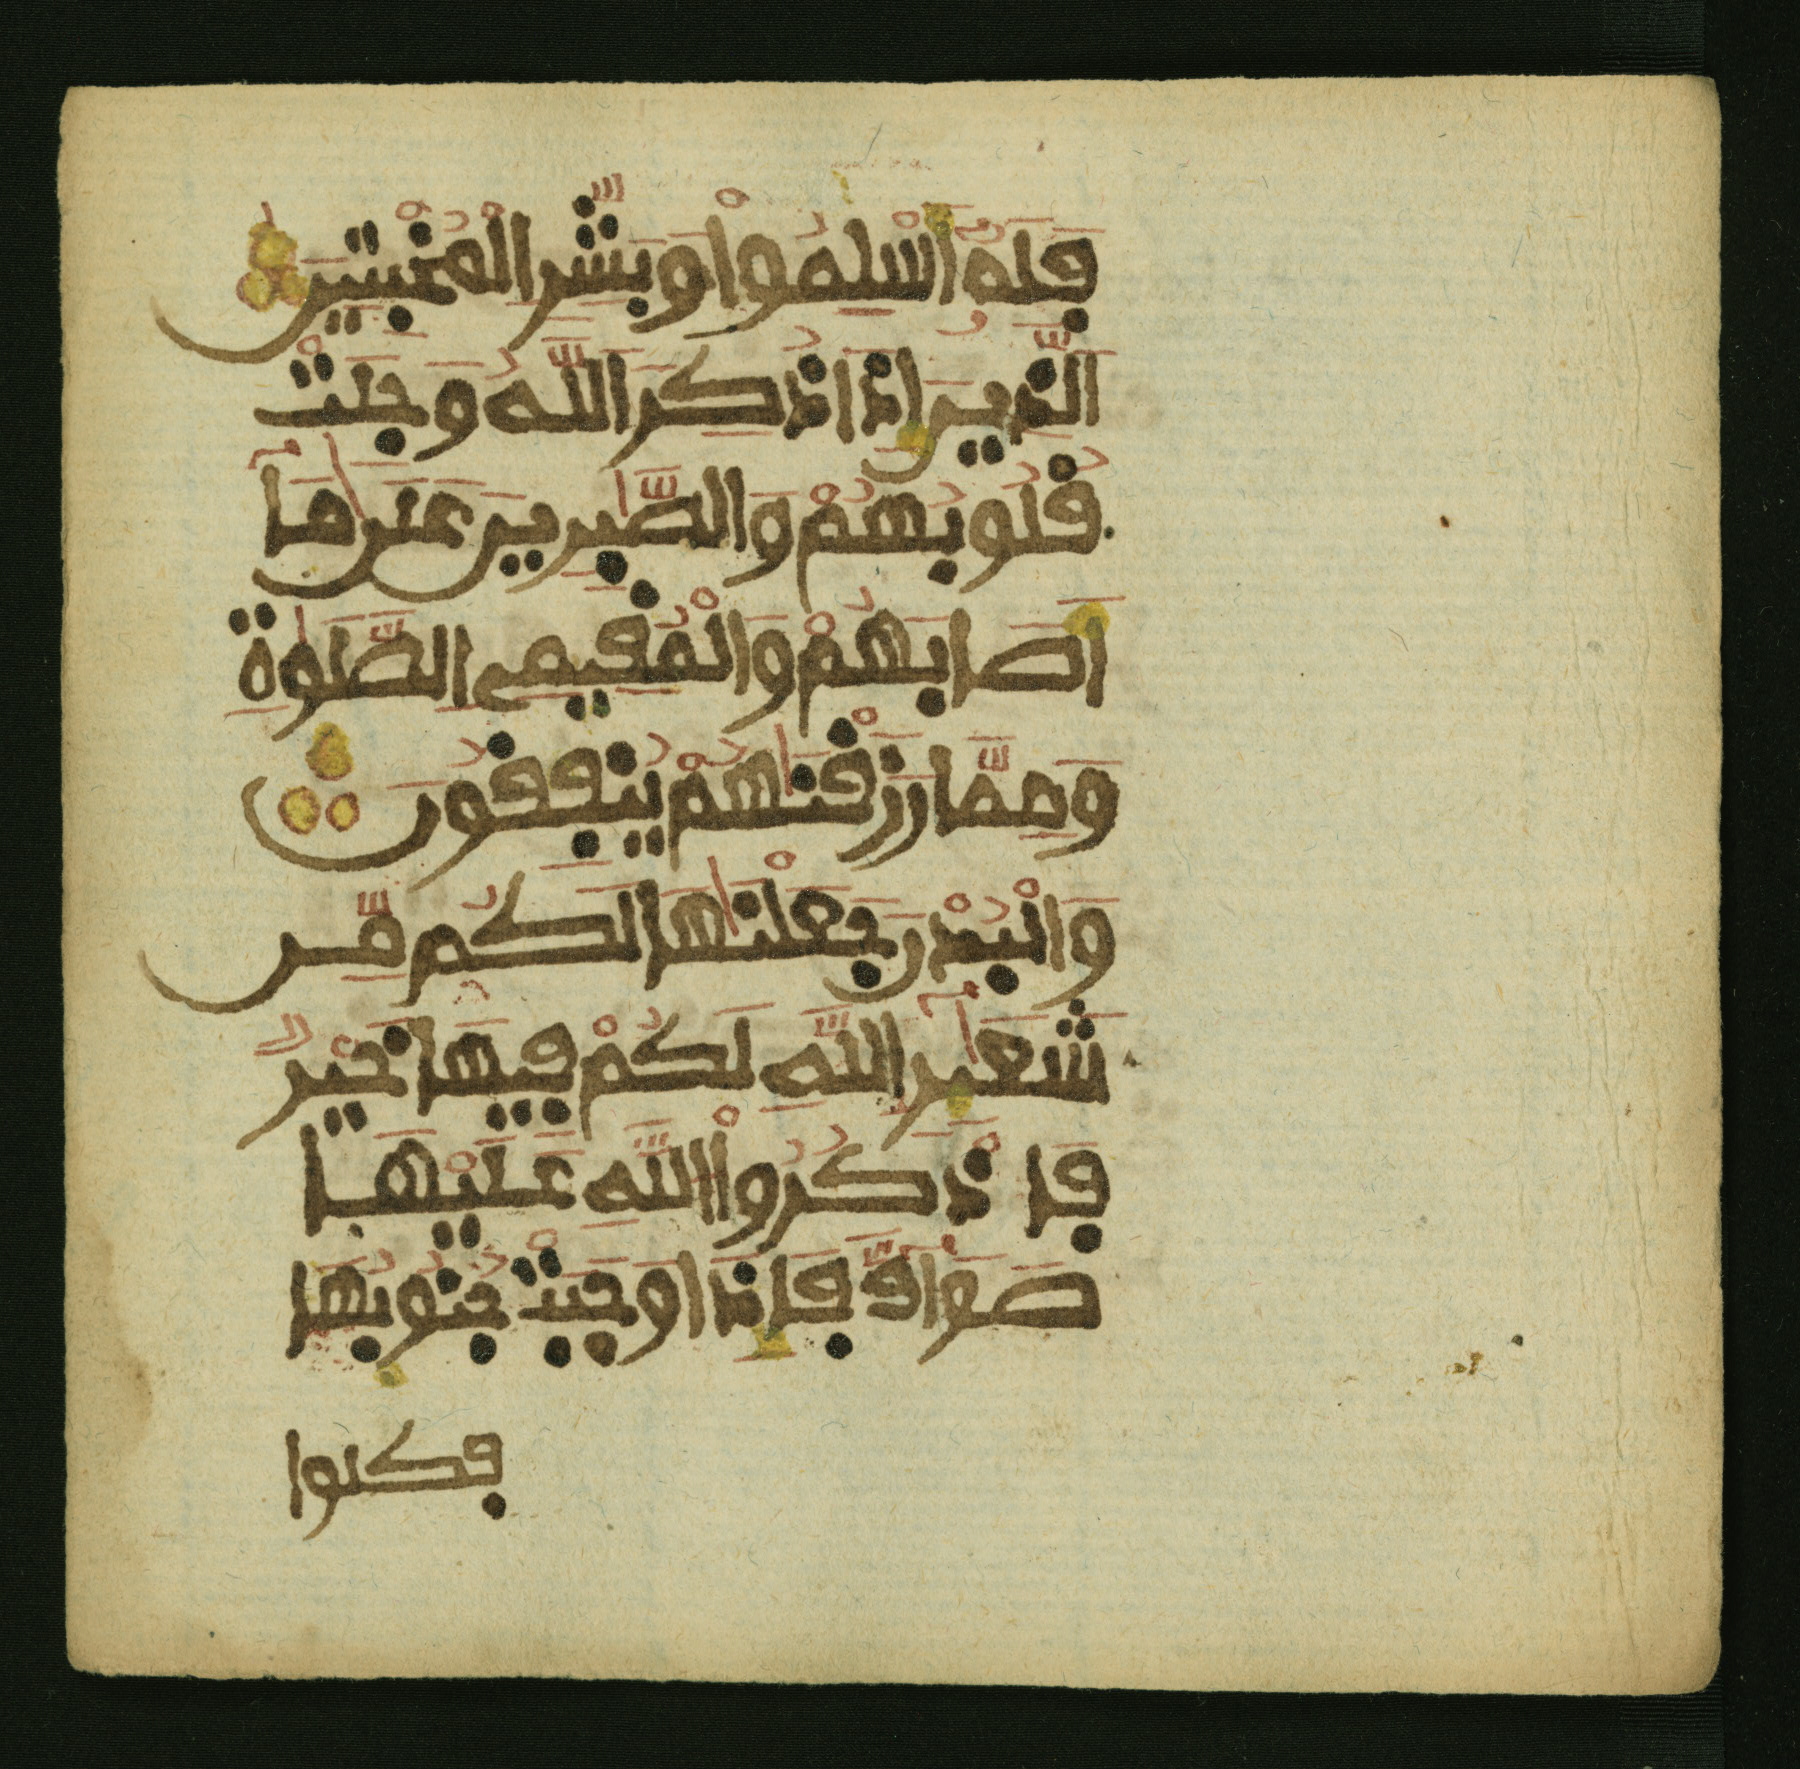 فَلَهُ أَسْلِمُواْ وَبَشِّرِ الْمُخْبِتِينَ
الَّذِينَ إِذَا ذُكِرَ اللَّهُ وَجِلَتْ
قُلُوبُهُمْ وَالصَّٰبِرِينَ عَلَىٰ مَا
أَصَابَهُمْ وَالْمُقِيمِي الصَّلَوٰةِ
وَمِمَّا رَزَقْنَٰهُمْ يُنفِقُونَ
وَالْبُدْنَ جَعَلْنَٰهَا لَكُم مِّن
شَعَٰئِرِ اللَّهِ لَكُمْ فِيهَا خَيْرٌ
فَاذْكُرُواْ اللَّهَ عَلَيْهَا
صَوَآفَّ فَإِذَا وَجَبَتْ جُنُوبُهَا
فكلوا